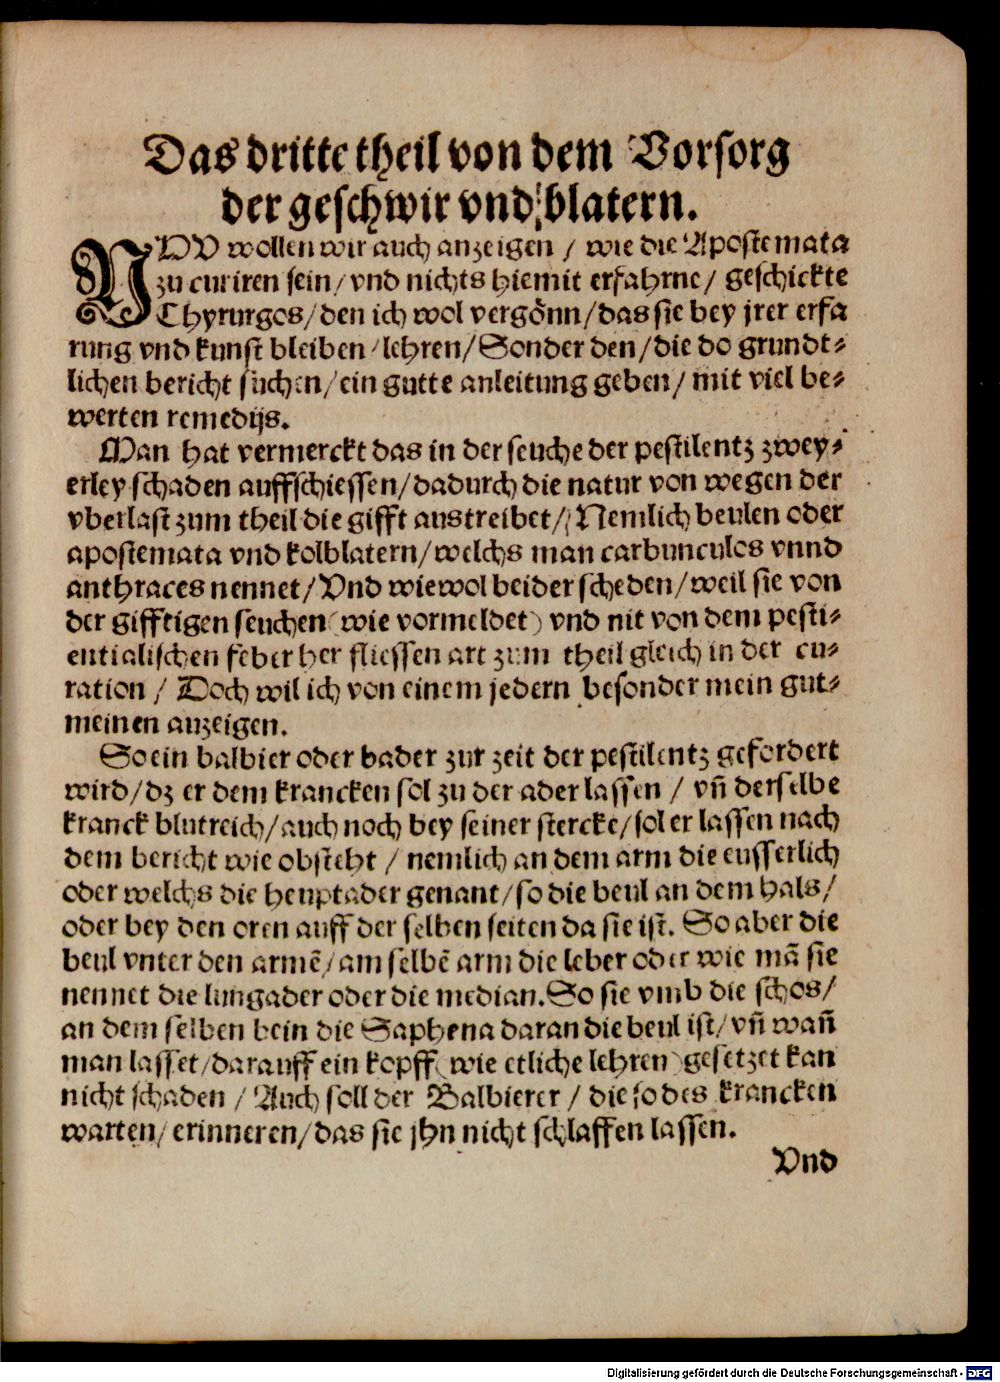 Das dritte theil von dem Vorsorg
der geschwir vnd blatern.
NVV wollen wir auch anzeigen / wie die Apostemata
zu curiren sein / vnd nichts hiemit erfahrne / geschickte
Chyrurgos / den ich wol vergönn / das sie bey jrer erfa
rung vnd kunst bleiben / lehren / Sonder den / die do grundt-
lichen bericht suchen / ein gutte anleitung geben / mit viel be-
werten remedijs.
Man hat vermerckt das in der seuche der pestilentz zwey-
erley schaden auffschiessen / dadurch die natur von wegen der
vberlast zum theil die gifft austreibet / Nemlich beulen oder
apostemata vnd kolblatern / welchs man carbunculos vnnd
anthraces nennet / Vnd wiewol beider scheden / weil sie von
der gifftigen seuchen (wie vormeldet) vnd nit von dem pesti-
entialischen feber her fliessen art zum theil gleich in der cu-
ration / Doch wil ich von einem jedern besonder mein gut-
meinen anzeigen.
So ein balbier oder bader zur zeit der pestilentz gefordert
wird / dz er dem krancken sol zu der ader lassen / vn̄ derselbe
kranck blutreich / auch noch bey seiner stercke / sol er lassen nach
dem bericht wie obsteht / nemlich an dem arm die eusserlich
oder welchs die heuptader genant / so die beul an dem hals /
oder bey den oren auff der selben seiten da sie ist. So aber die
beul vnter den armē / am selbē arm die leber oder wie mā sie
nennet die lungader oder die median. So sie vmb die schos /
an dem selben bein die Saphena daran die beul ist / vn̄ wan̄
man lasset / darauff ein kopff (wie etliche lehren) gesetzet kan
nicht schaden / Auch soll der Balbierer / die so des krancken
warten / erinneren / das sie jhn nicht schlaffen lassen.
Vnd
Digitalisierung gefördert durch die Deutsche Forschungsgemeinschaft - DFG